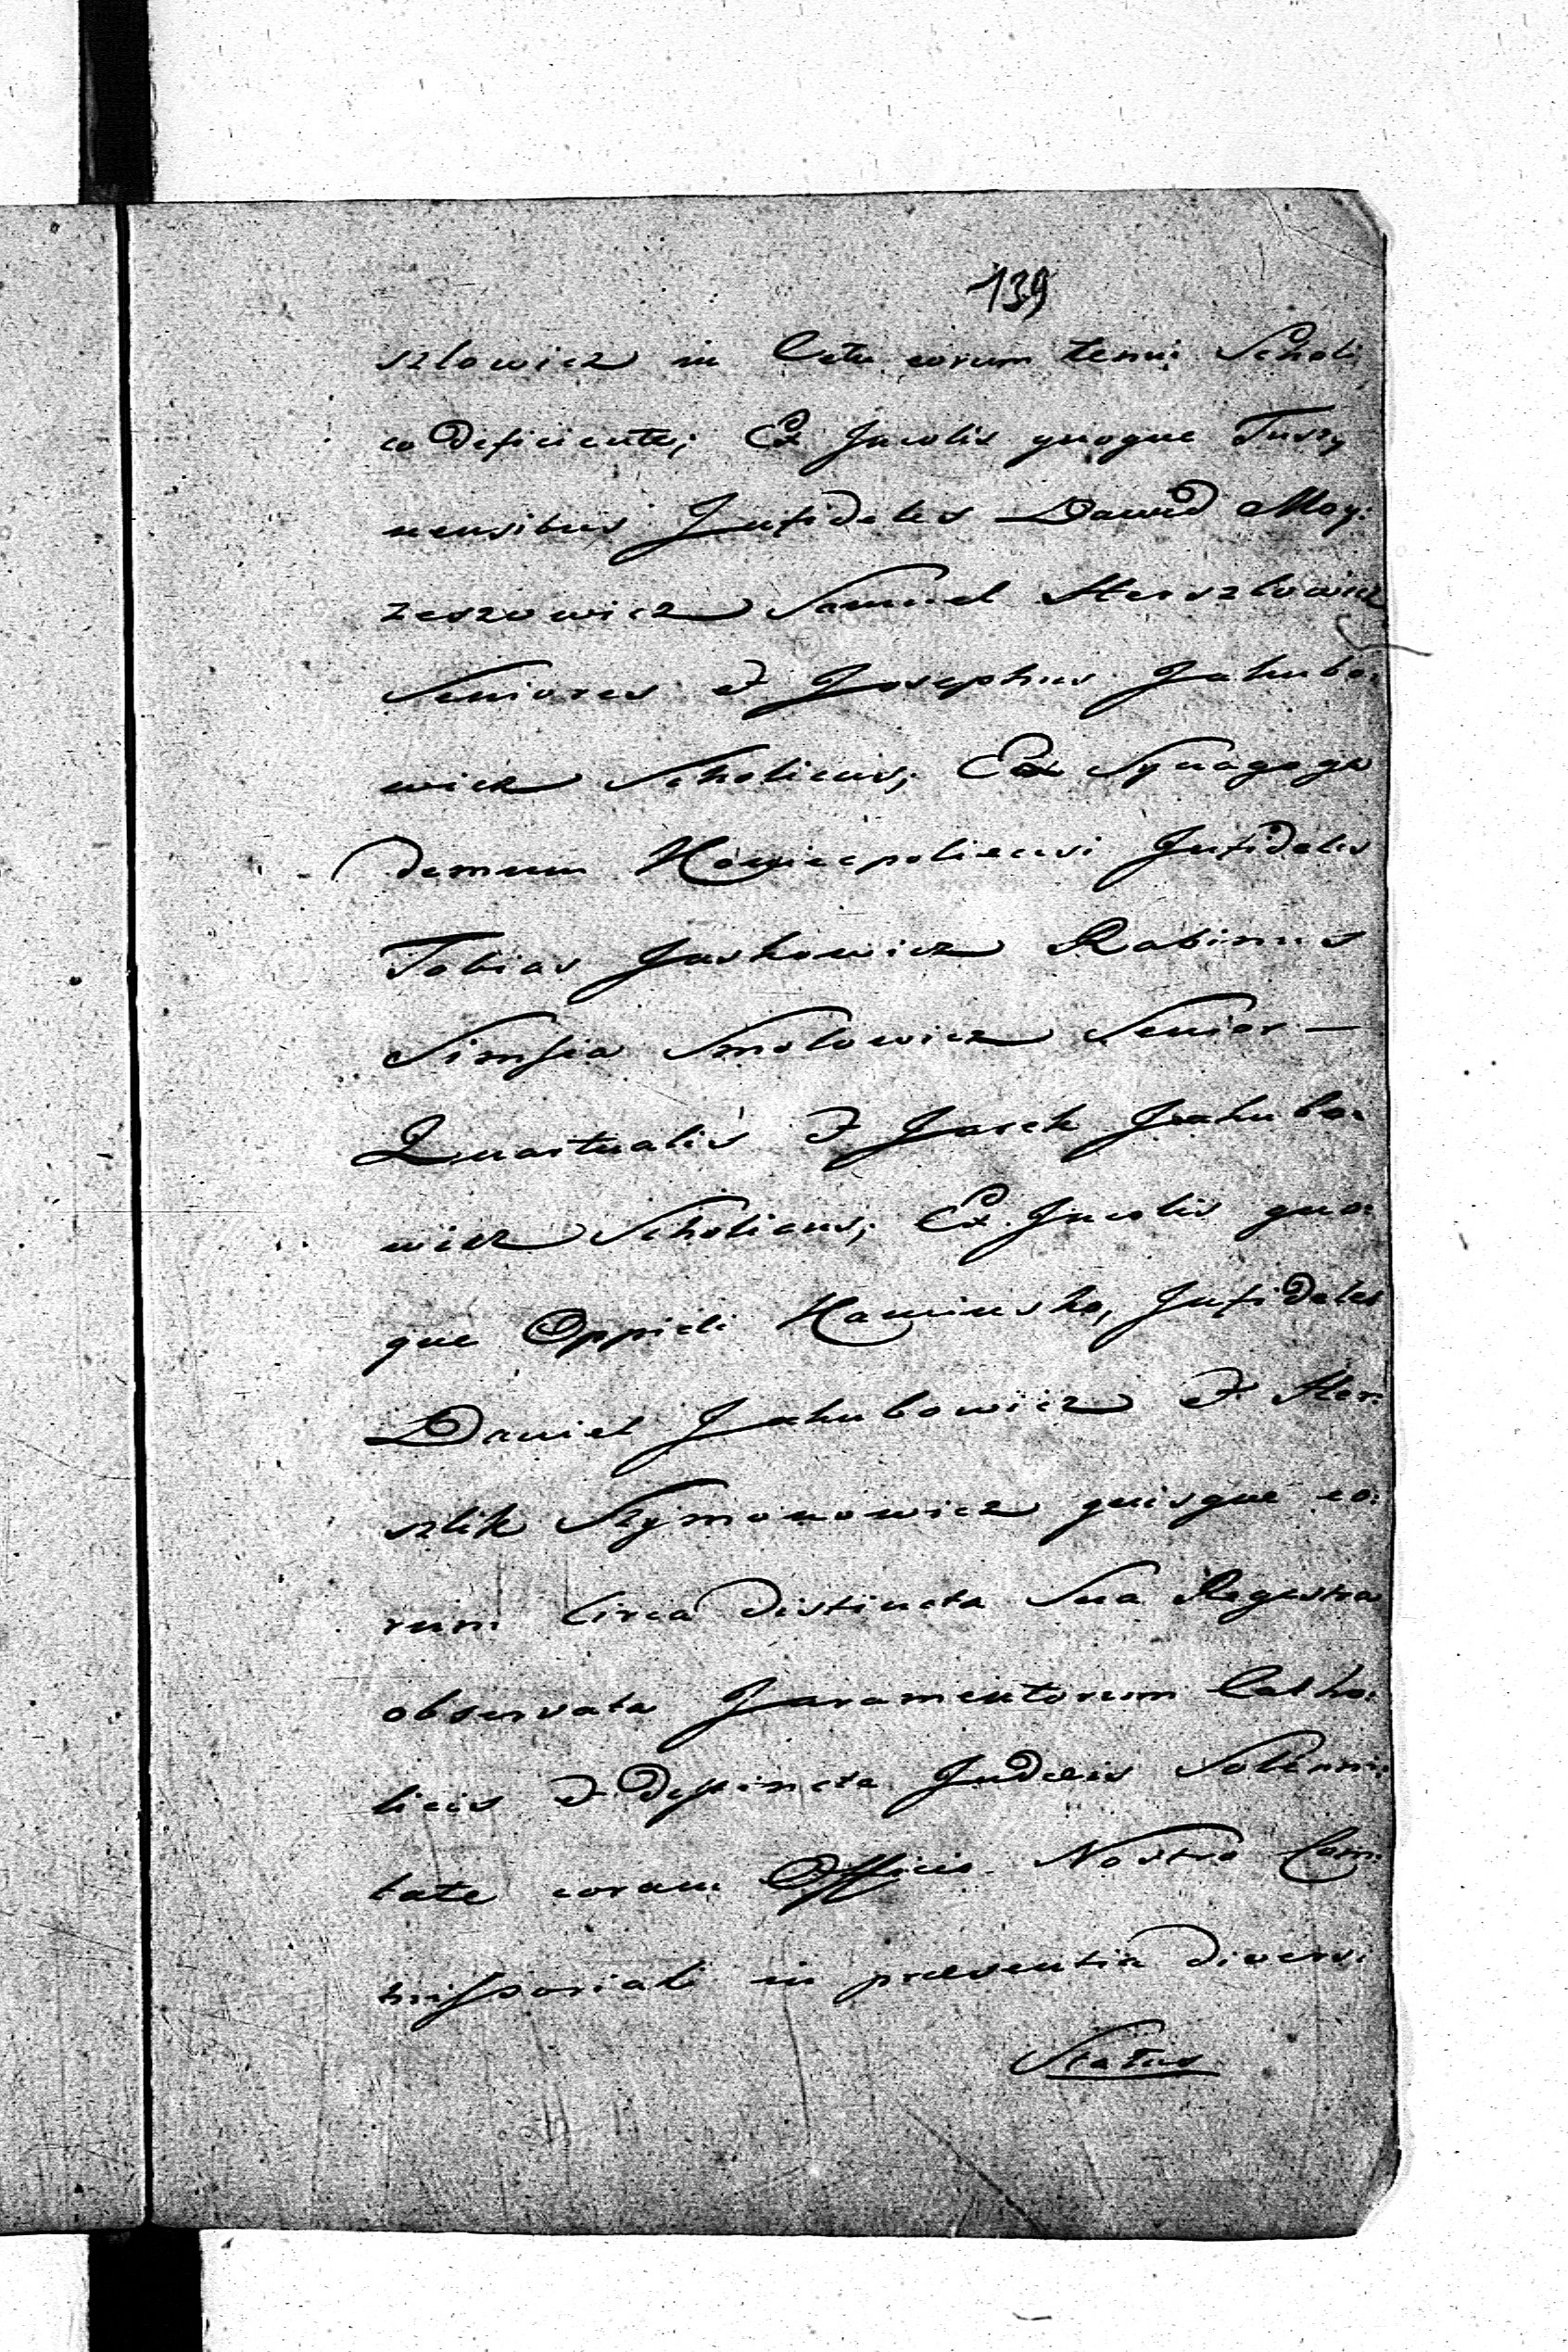 139
szlowicz in Cetu eorum tenui Scholi
co deficiente; Ex Incolis quoque Tuszy
nensibus Infideles Dawid Moy:
zeszowicz Samuel Herszlowicz
Seniores et Josephus Jakubo:
wicz Scholicus; Ex Synagoga
demum Koniecpoliensi Infideles
Tobias Jaskowicz Rabinus
Simsia Smolowicz Senior —
Quartualis et Jarek Jakubo:
wicz Scholicus; Ex Incolis quo:
que Oppidi Kaminsko, Infideles
Daniel Jakubowicz et Her:
szlik Szymonowicz quisque eo:
rum Circa distincta Sua Regestra
observata Juramentorum Catho:
licis et distincta Judaeis Solenni:
tate coram Officio Nostro Com:
missoriali in praesentia diversi
Status